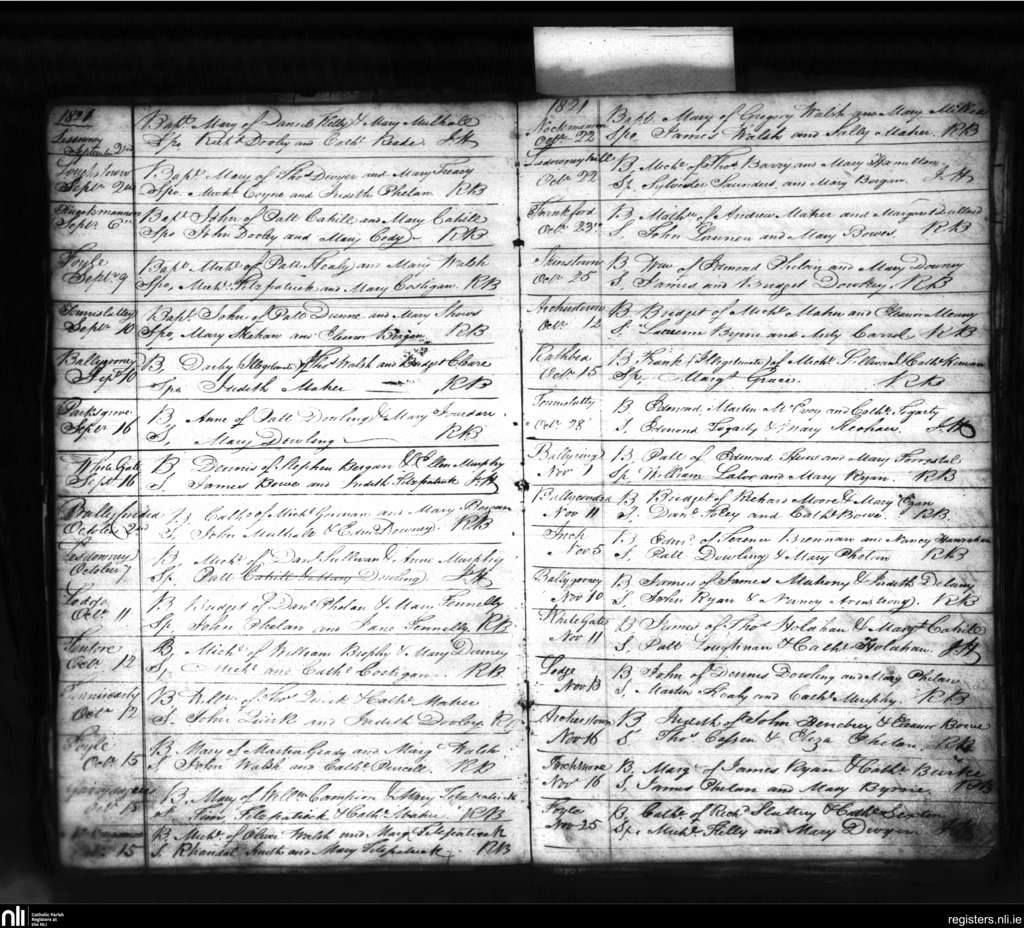 1821
Lisdowney Bapt. Mary of Daniel Kelly & Mary Mulhall
September 2nd Spo Richd. Dooly and Cath. Keade JH
Loughtown Bapt. Mary of Thos Dwyer and Mary Treacy
Septr. 2nd Spo. Michl. Coyne and Judith Phelan RB
Bapt. John of Patt Cahill and Mary Cahill
Septr. 6th Spo John Dooly and Mary Cody RB
Foyle Bapt. Michl. of Patt Healy and Mary Walsh
Septr. 9 Spo, Michl. Fitzpatrick and Mary Costigan. RB
Townslatty Bapt. John of Patt Dunne and Mary
Septr. 10 Spo, Mary Mehan and Eleanor Bergan RB
Ballygooney B, Darby Illegitimate of Thos Walsh and Bridget Cleare
Septr. 10 Spo Judith Maher RB
Parksgrove B. Anne of Patt Dowling & Mary Jourdan.
Septr. 16 S, Mary Dowling RB
White Gate B. Dennis of Stephen Bergan & Ellen Murphy
Septr. 16 S. James Bowe and Judith Fitzpatrick JH
B. Cath. of Michl. and Mary Bergan
October 2nd S. John Mulhall & Eden Downey. RB
Lisdowney B. Michl. of Danl. Sullivan & Anne Murphy
October 7 Sp. Patt Cahill & Mary Dowling. JH
Lodge B. Bridget of Danl. Phelan & Mary Fennelly
Octr. 11 Sp. John Phelan and Jane Fennelly RB
B. Michl. of William Brophy & Mary
Octr. 12 S, Michl. and Cath. Costigan. RB
B of Thos Quirk & Cath. Maher
Octr. 12 S. John Quirk and Judith Dooley.
Foyle B. Mary of Martin Grady and Margt. Walsh
Octr. 15 S John Walsh and Cath. Purcell. RB
B. Mary of Willm Campion & Mary Fitzpatrick
Octr. 15 S. Fitzpatrick & Cath. Maher RB
B. Michl. of Oliver Walsh and Margt. Fitzpatrick
15 S. Rhandal Smith and Mary Fitzpatrick RB
1821
Bapt. Mary of Gregory Walsh and Mary
Octr. 22 Spo. James Walsh and Judy Maher. RB
Lisdowney hill B, Michl. of Thos. Barry and Mary Hamilton
Octr. 22 Sp. Sylvester Saunders, and Mary Bergan. JH
B. Mathw. of Andrew Maher and Margaret Dullard
Octr. 23rd S. John and Mary Bowes RB
B of Edmond Phelan and Mary Downey
Octr. 25 S. James and Bridget RB
Archerstown B. Bridget of Michl. Maher and Eleanor Meany
Octr. 12 S. Byrne and Carrol RB
Rathbea B. Frank (Illegitimate) of Michl. & Cath.
Octr. 15 Sp. Margt. Grace. RB
Townslatty B. Edmond, Martin McEvoy and Cath. Fogarty
Octr. 28 S. Edmond Fogarty & Mary Meehan. JH
Ballyring B. Patt of Edmond and Mary Forrestal
Nov 1 Sp, William Lalor and Mary Ryan. RB
B Bridget of Richard Moore & Mary Egan
Nov 11 S. Danl. Kelly and Cath. Bowe. RB.
Inch B. Edmd. of Terence Brennan and Nancy Hanrahan
Nov 5 S. Patt Dowling & Mary Phelan RB
Ballygooney B James of James Mahony & Judith Delany
Nov 10 S, John Ryan & Nancy Armstrong. RB
White Gate B James of Thos. Holahan & Margt Cahill
Nov 11 S Patt Loughnan & Cath. Holahan. JH
Lodge B. John of Dennis Dowling and Mary Phelan
Nov 13 S, Martin Healy and Cath. Murphy. RB
Archerstown B. Judith of John & Eleanor Bowe
Nov 16 S Thos Cassen & Eliza Phelan, RB
Inchmore B. Margt. of James Ryan & Cath. Burke
Nov 16 S, James Phelan and Mary Byrne. RB
Foyle B, Cath. of Richd. Slattery & Cath. Sexton
Nov 25 Sp. Michl. Kelly and Mary Dwyer
nli Catholic Parish
Registers at
the NLI
registers.nli.ie